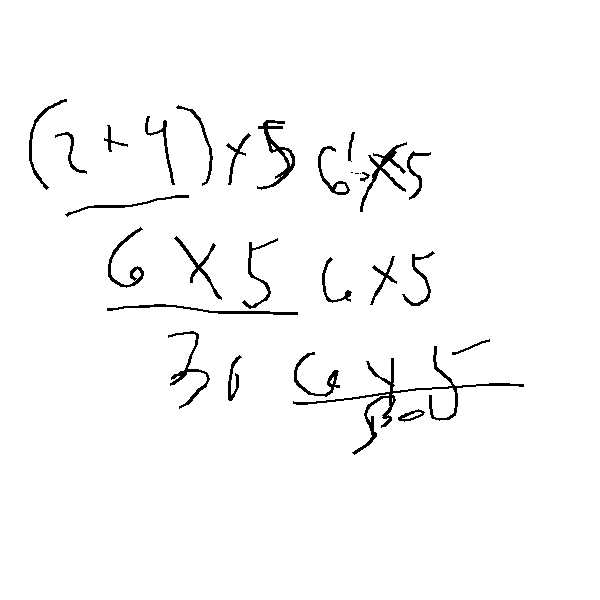 (2+4)×5 6×5
6×5 6×5
30 6×5
30